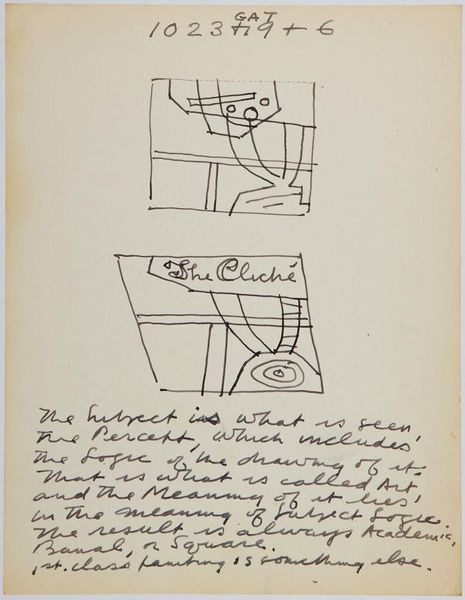 GAT
1023 H9 + 6
The Cliché
The Subject is what is seen,
the Percept, which includes
the Logic of the drawing of it.
That is what is called Art
and the Meaning of it lies,
in the meaning of Subject Logic.
The result is always Academic,
Banal, or Square.
1st. class painting is something else.